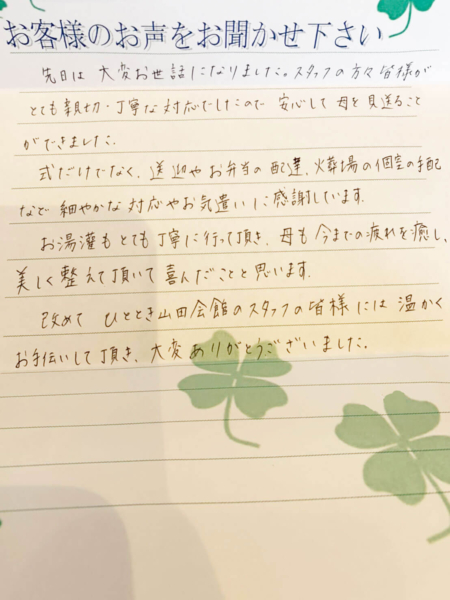 お客様のお声をお聞かせ下さい
先日は大変お世話になりました。スタッフの方々皆様が
とても親切・丁寧な対応でしたので安心して母を見送ること
ができました。
式だけでなく、送迎やお弁当の配達、火葬場の個室の手配
など細やかな対応やお気遣いに感謝しています。
お湯灌もとても丁寧に行って頂き、母も今までの疲れを癒し、
美しく整えて頂いて喜んだことと思います。
改めてひととき山田会館のスタッフの皆様には温かく
お手伝いして頂き、大変ありがとうございました。